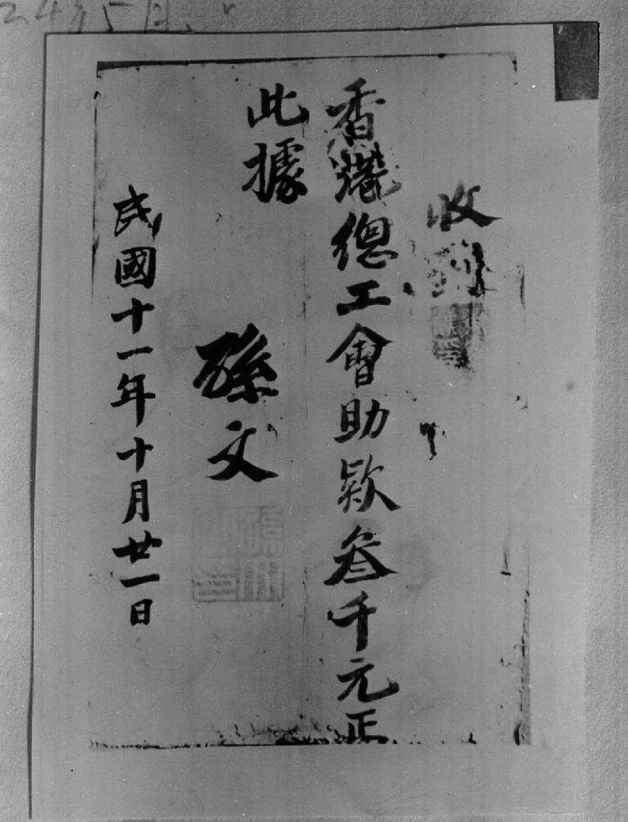 收到
香港總工會助款叁千元正
此據
孫文
民國十一年十月廿一日